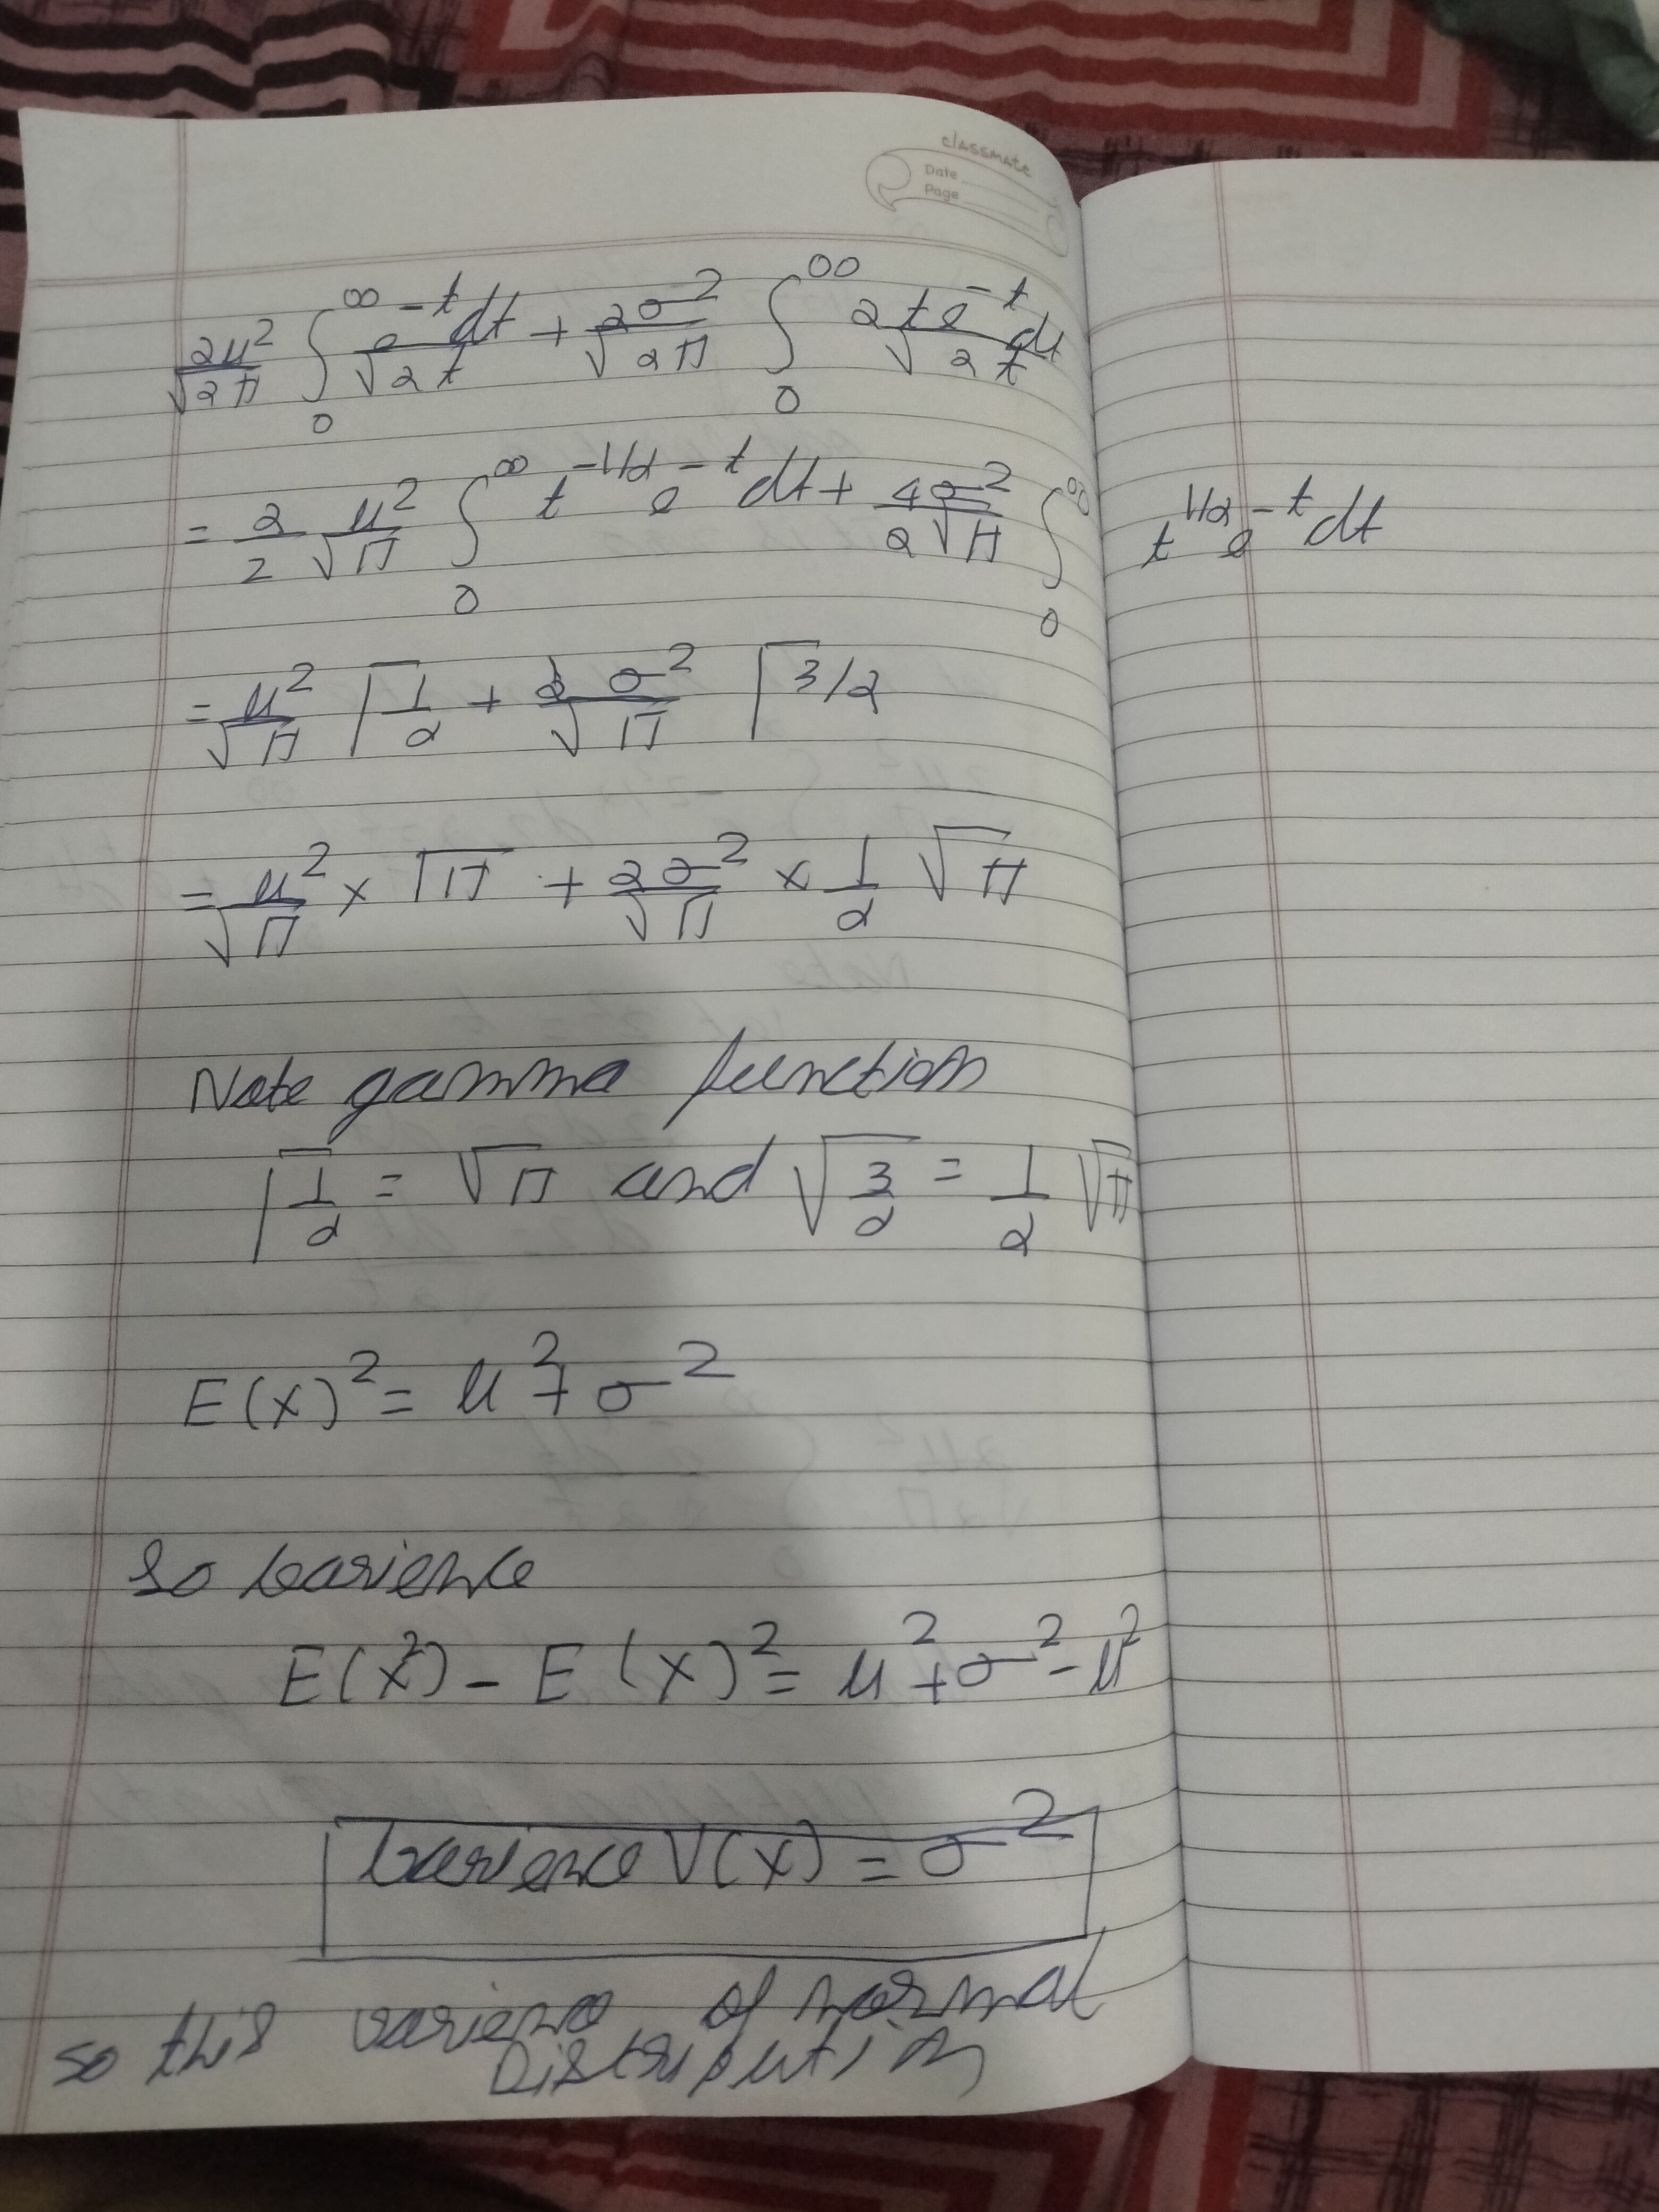 classmate
Date
Page
2μ²/√2π ∫₀^∞ e^-t/√2t dt + 2σ²/√2π ∫₀^∞ 2te^-t/√2t dt
= 2/2 μ²/√π ∫₀^∞ t^-1/2 e^-t dt + 4σ²/2√π ∫₀^∞ t^1/2 e^-t dt
= μ²/√π Γ1/2 + 2σ²/√π Γ3/2
= μ²/√π × √π + 2σ²/√π × 1/2 √π
Note gamma function
Γ1/2 = √π and √3/2 = 1/2 √π
E(x)² = μ² + σ²
So varience
E(x²) - E(x)² = μ² + σ² - μ²
Varience V(x) = σ²
so this varience of normal
Distribution